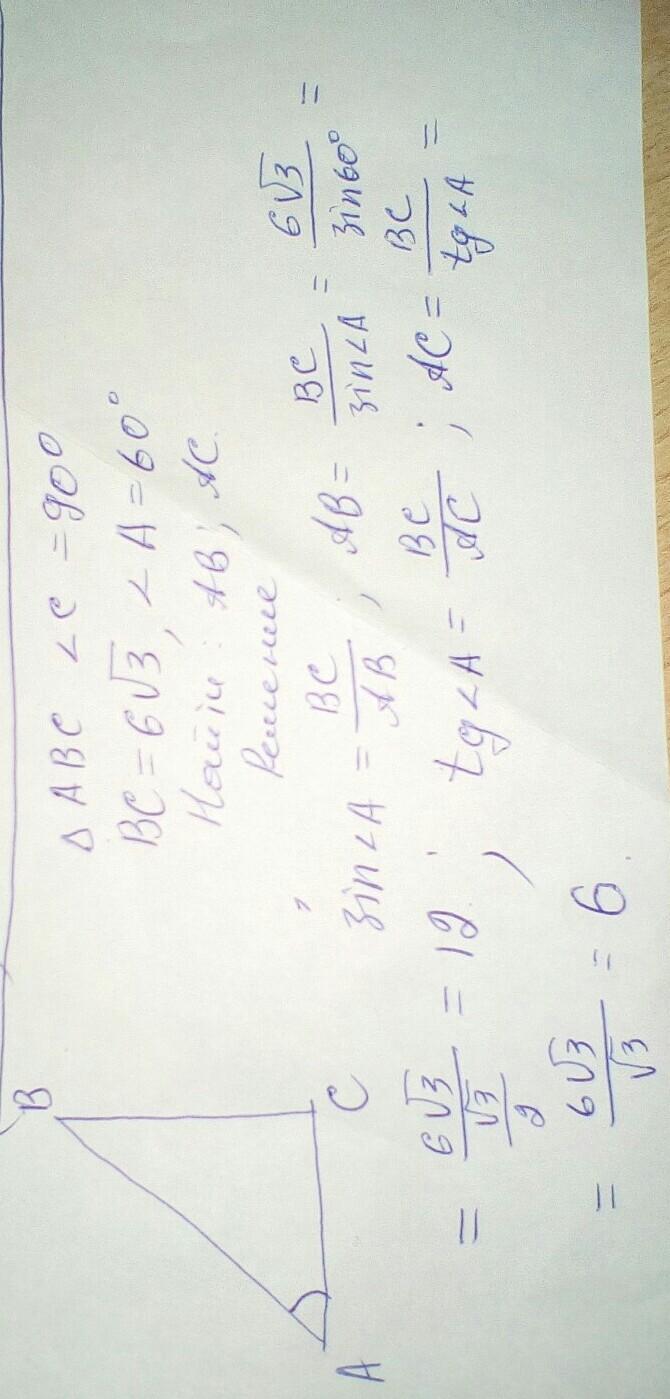 Δ ABC ∠C = 90°
BC = 6√3, ∠A = 60°
Найти: AB; AC.
Решение
B
A
C
sin∠A = BC/AB; AB = BC/sin∠A = 6√3/sin60° =
= 6√3/(√3/2) = 12; tg∠A = BC/AC; AC = BC/tg∠A =
= 6√3/√3 = 6.